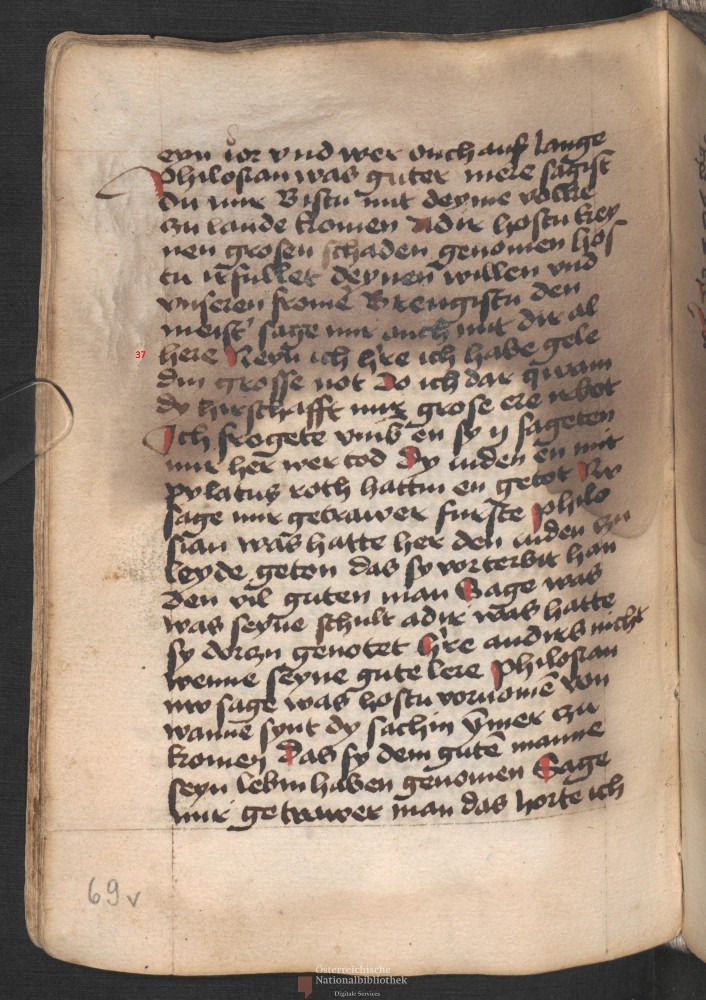 eyn ior vnd wer ouch auf lange
Philosian was guter mere sagist
du mir Bistu mit deyme volke
zu lande komen Adir hostu key
nen grosen schaden genomen hos
tu irfullet deynen willen vnd
vnseren frome Brengistu den
meist' sage mir ouch mit dir al
37
here Neyn ich h're ich habe gele
din grosse not Do ich dar qwam
dy hirschafft mir grose ere irbot
Ich frogete vmb en sy sageten
mir her wer tod Dy iuden en mit
pylatus roth hattin en getot Nw
sage mir getrawer furste philo
sian was hatte her den iuden zu
leyde geton das sy vorterbit han
den vil guten man Sage was
was seyne schult adir was hatte
sy dorzu genotet h're andirs nicht
wenne seyne gute lere Philosian
nw sage was hostu vornomē von
wanne synt dy sachin ymer zu
komen Das sy dem gutē manne
seyn lebin haben genomen Sage
mir getrawer man das horte ich
69v
Österreichische
Nationalbibliothek
Digitale Services